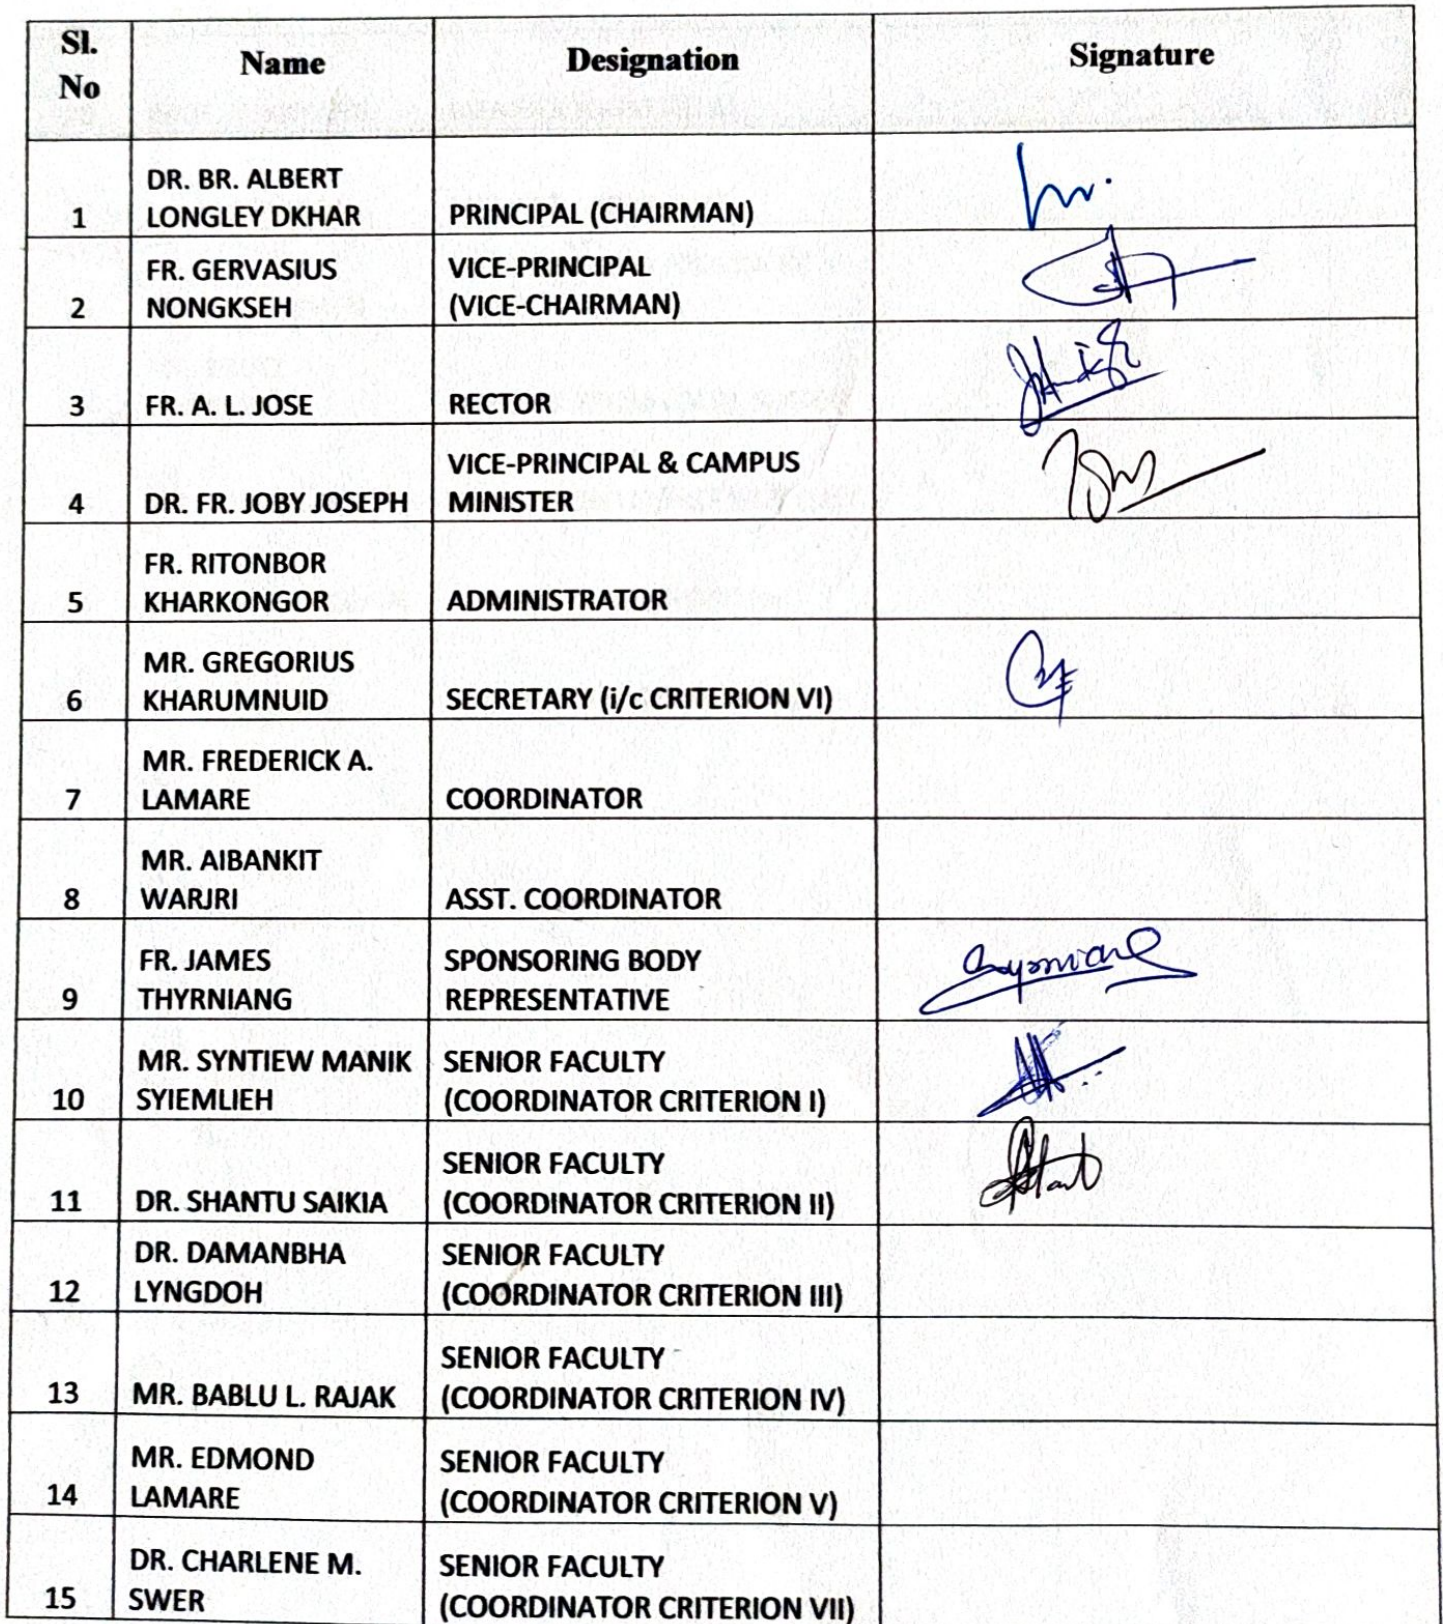 Sl. No
Name
Designation
Signature
1
DR. BR. ALBERT
LONGLEY DKHAR
PRINCIPAL (CHAIRMAN)
2
FR. GERVASIUS
NONGKSEH
VICE-PRINCIPAL
(VICE-CHAIRMAN)
3
FR. A. L. JOSE
RECTOR
4
DR. FR. JOBY JOSEPH
VICE-PRINCIPAL & CAMPUS
MINISTER
5
FR. RITONBOR
KHARKONGOR
ADMINISTRATOR
6
MR. GREGORIUS
KHARUMNUID
SECRETARY (i/c CRITERION VI)
7
MR. FREDERICK A.
LAMARE
COORDINATOR
8
MR. AIBANKIT
WARJRI
ASST. COORDINATOR
9
FR. JAMES
THYRNIANG
SPONSORING BODY
REPRESENTATIVE
10
MR. SYNTIEW MANIK
SYIEMLIEH
SENIOR FACULTY
(COORDINATOR CRITERION I)
11
DR. SHANTU SAIKIA
SENIOR FACULTY
(COORDINATOR CRITERION II)
12
DR. DAMANBHA
LYNGDOH
SENIOR FACULTY
(COORDINATOR CRITERION III)
13
MR. BABLU L. RAJAK
SENIOR FACULTY
(COORDINATOR CRITERION IV)
14
MR. EDMOND
LAMARE
SENIOR FACULTY
(COORDINATOR CRITERION V)
15
DR. CHARLENE M.
SWER
SENIOR FACULTY
(COORDINATOR CRITERION VII)